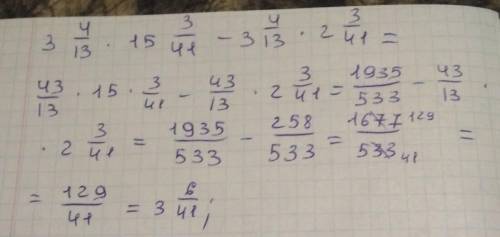 3 4/13 · 15 3/41 - 3 4/13 · 2 3/41 =
43/13 · 15 · 3/41 - 43/13 · 2 3/41 = 1935/533 - 43/13 ·
· 2 3/41 = 1935/533 - 258/533 = 1677/533 129/41 =
= 129/41 = 3 6/41;